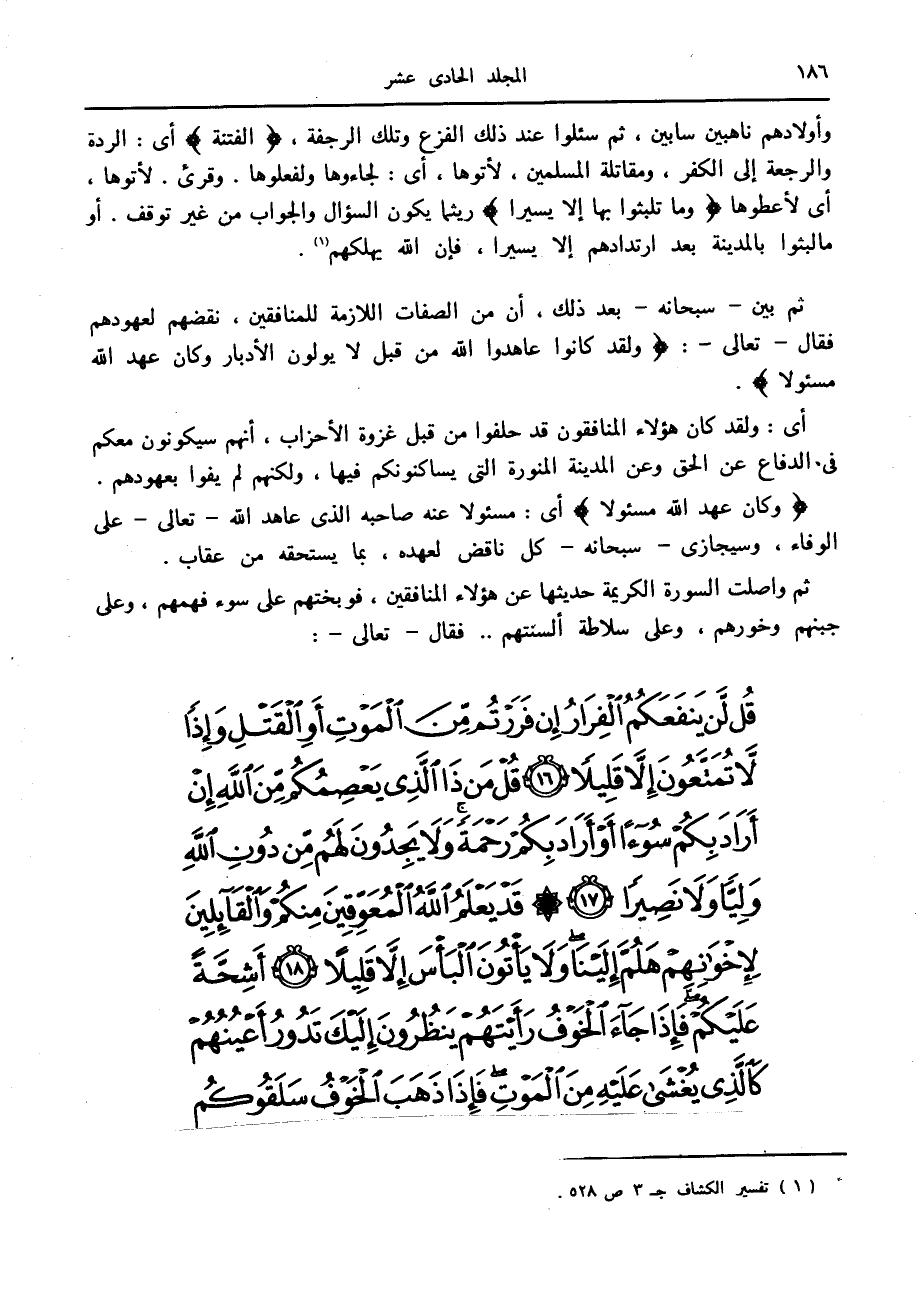 ١٨٦
المجلد الحادى عشر
وأولادهم ناهبين سابين ، ثم سئلوا عند ذلك الفزع وتلك الرجفة ، ﴿ الفتنة ﴾ أى : الردة
والرجعة إلى الكفر ، ومقاتلة المسلمين ، لأتوها ، أى : لجاءوها ولفعلوها . وقرئ . لأتوها ،
أى لأعطوها ﴿ وما تلبثوا بها إلا يسيرا ﴾ ريثما يكون السؤال والجواب من غير توقف . أو
مالبثوا بالمدينة بعد ارتدادهم إلا يسيرا ، فإن الله يهلكهم(١) .
ثم بين – سبحانه – بعد ذلك ، أن من الصفات اللازمة للمنافقين ، نقضهم لعهودهم
فقال – تعالى – : ﴿ ولقد كانوا عاهدوا الله من قبل لا يولون الأدبار وكان عهد الله
مسئولا ﴾ .
أى : ولقد كان هؤلاء المنافقون قد حلفوا من قبل غزوة الأحزاب ، أنهم سيكونون معكم
فى الدفاع عن الحق وعن المدينة المنورة التى يساكنونكم فيها ، ولكنهم لم يفوا بعهودهم .
﴿ وكان عهد الله مسئولا ﴾ أى : مسئولا عنه صاحبه الذى عاهد الله – تعالى – على
الوفاء ، وسيجازى – سبحانه – كل ناقض لعهده ، بما يستحقه من عقاب .
ثم واصلت السورة الكريمة حديثها عن هؤلاء المنافقين ، فوبختهم على سوء فهمهم ، وعلى
جبنهم وخورهم ، وعلى سلاطة ألسنتهم .. فقال – تعالى – :
قُل لَّن يَنفَعَكُمُ ٱلْفِرَارُ إِن فَرَرْتُم مِّنَ ٱلْمَوْتِ أَوِ ٱلْقَتْلِ وَإِذًا
لَّا تُمَتَّعُونَ إِلَّا قَلِيلًا ١٦ قُلْ مَن ذَا ٱلَّذِى يَعْصِمُكُم مِّنَ ٱللَّهِ إِنْ
أَرَادَ بِكُمْ سُوٓءًا أَوْ أَرَادَ بِكُمْ رَحْمَةً ۚ وَلَا يَجِدُونَ لَهُم مِّن دُونِ ٱللَّهِ
وَلِيًّا وَلَا نَصِيرًا ١٧ ۞ قَدْ يَعْلَمُ ٱللَّهُ ٱلْمُعَوِّقِينَ مِنكُمْ وَٱلْقَآئِلِينَ
لِإِخْوَٰنِهِمْ هَلُمَّ إِلَيْنَا ۖ وَلَا يَأْتُونَ ٱلْبَأْسَ إِلَّا قَلِيلًا ١٨ أَشِحَّةً
عَلَيْكُمْ ۖ فَإِذَا جَآءَ ٱلْخَوْفُ رَأَيْتَهُمْ يَنظُرُونَ إِلَيْكَ تَدُورُ أَعْيُنُهُمْ
كَٱلَّذِى يُغْشَىٰ عَلَيْهِ مِنَ ٱلْمَوْتِ ۖ فَإِذَا ذَهَبَ ٱلْخَوْفُ سَلَقُوكُم
( ١ ) تفسير الكشاف جـ ٣ ص ٥٢٨ .